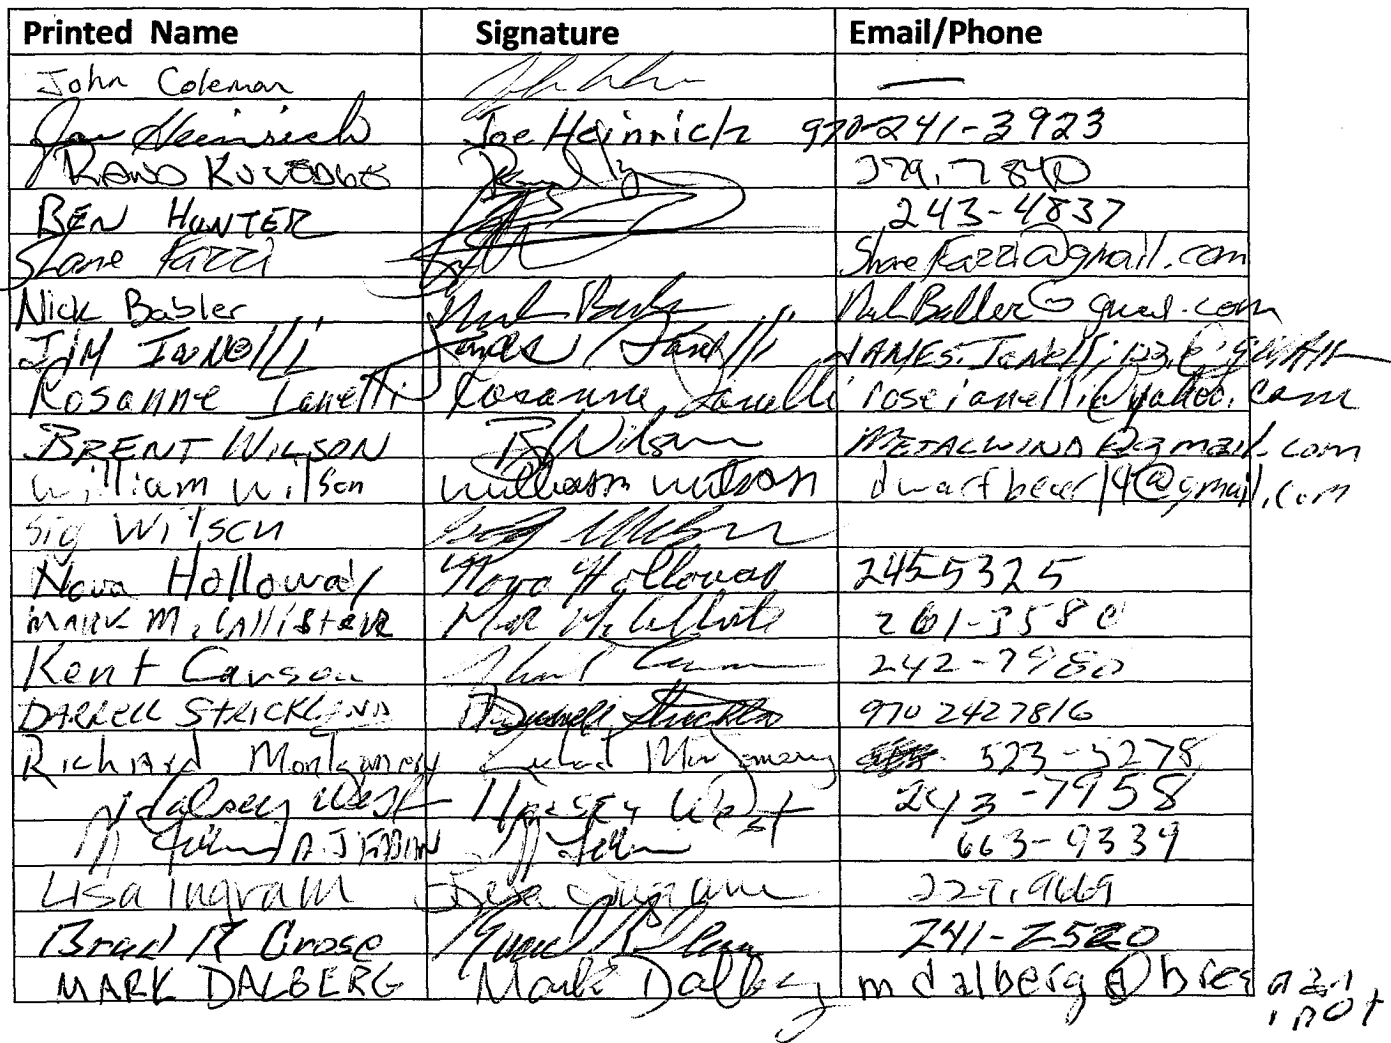 Printed Name Signature Email/Phone
John Coleman —
Joe Heinrich Joe Heinrich 970-241-3923
RAND 379.7840
BEN HUNTER 243-4837
Shane Fazzi ShaneFazzi@gmail.com
Nick Babler
JIM IANELLI James Ianelli
Rosanne Ianelli Rosanne Ianelli roseianelli@yahoo.com
BRENT WILSON B Wilson METALWIND@gmail.com
William Wilson William Wilson
Sig Wilson Sig Wilson
Nova Holloway Nova Holloway 245-5325
MARK McCALLISTER 261-3580
Kent Carson Kent Carson 242-7980
DARRELL STRICKLAND Darrell Strickland 970 2427816
Richard Montgomery Richard Montgomery 523-5278
Halsey West Halsey West 243-7958
663-9339
Lisa Ingram Lisa Ingram
Brad R Grose 241-2520
MARK DALBERG Mark Dalberg mdalberg@bresnan.net